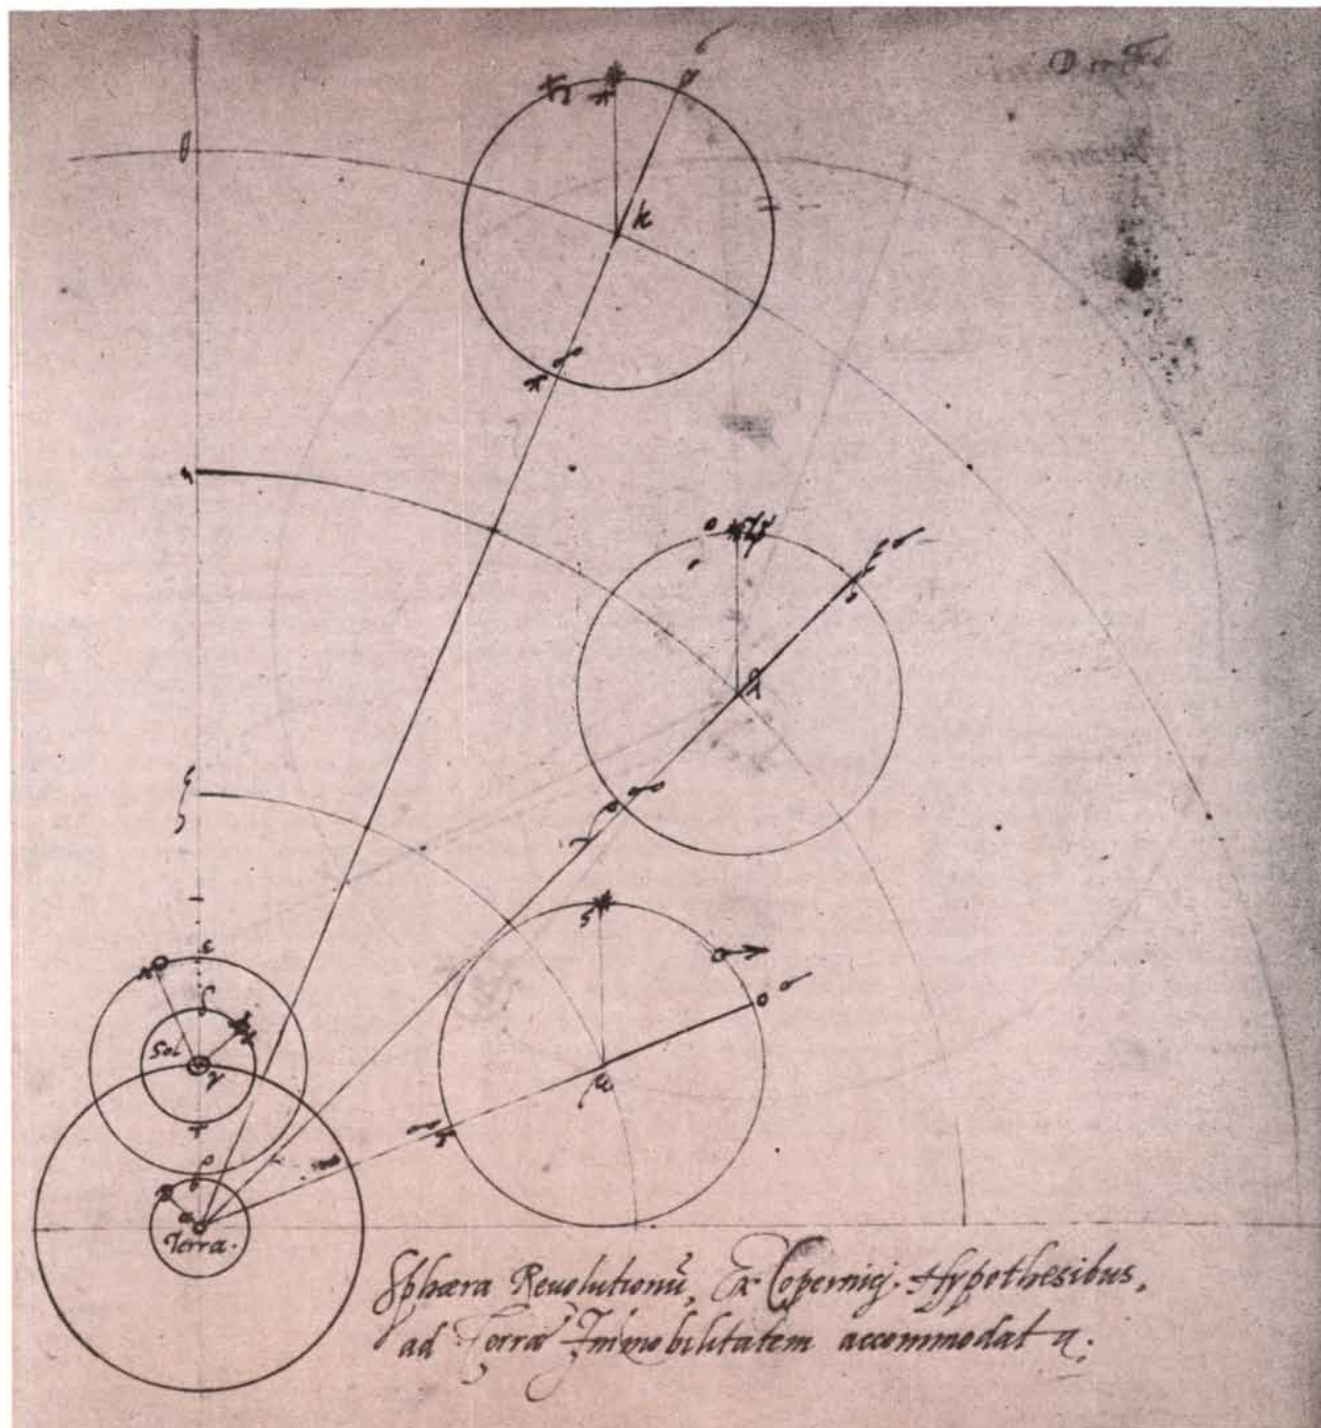 θ
k
η
λ
ζ
ε
δ
Sol
γ
μ
β
α
Terra.
Sphæra Reuolutionũ, Ex Copernicj. Hypothesibus,
ad Terræ Immobilitatem accommodata.